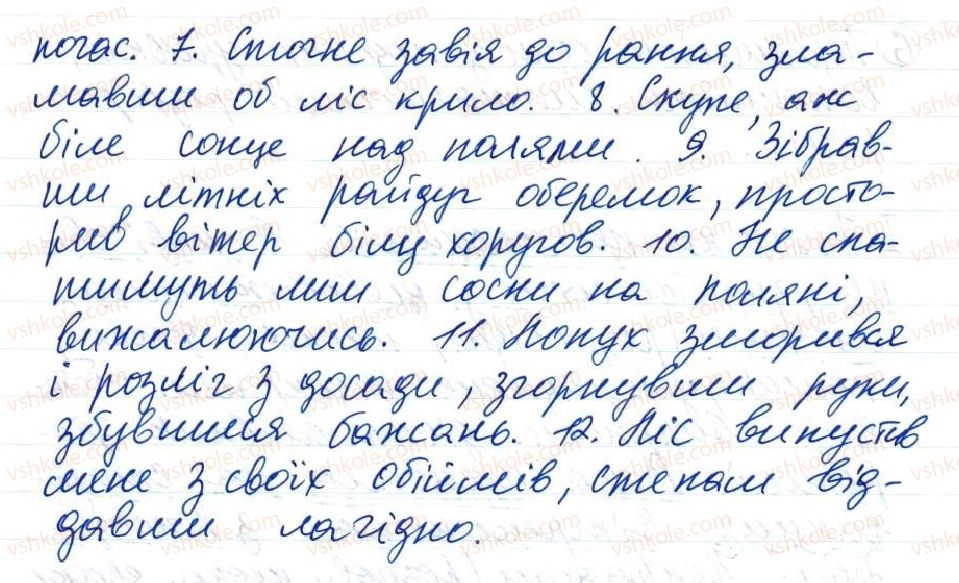 погас. 7. Стогне завія до рання, зла-
мавши об ліс крило. 8. Скупе, аж
біле сонце над полями. 9. Зібрав-
ши літніх райдуг оберемок, просто-
рив вітер білу хоругов. 10. Не спа-
тимуть лиш сосни на поляні,
вижалюючись. 11. Лопух зморився
і розліг з досади, згорнувши руки,
збувшися бажань. 12. Ліс випустив
мене з своїх обіймів, степам від-
давши лагідно.